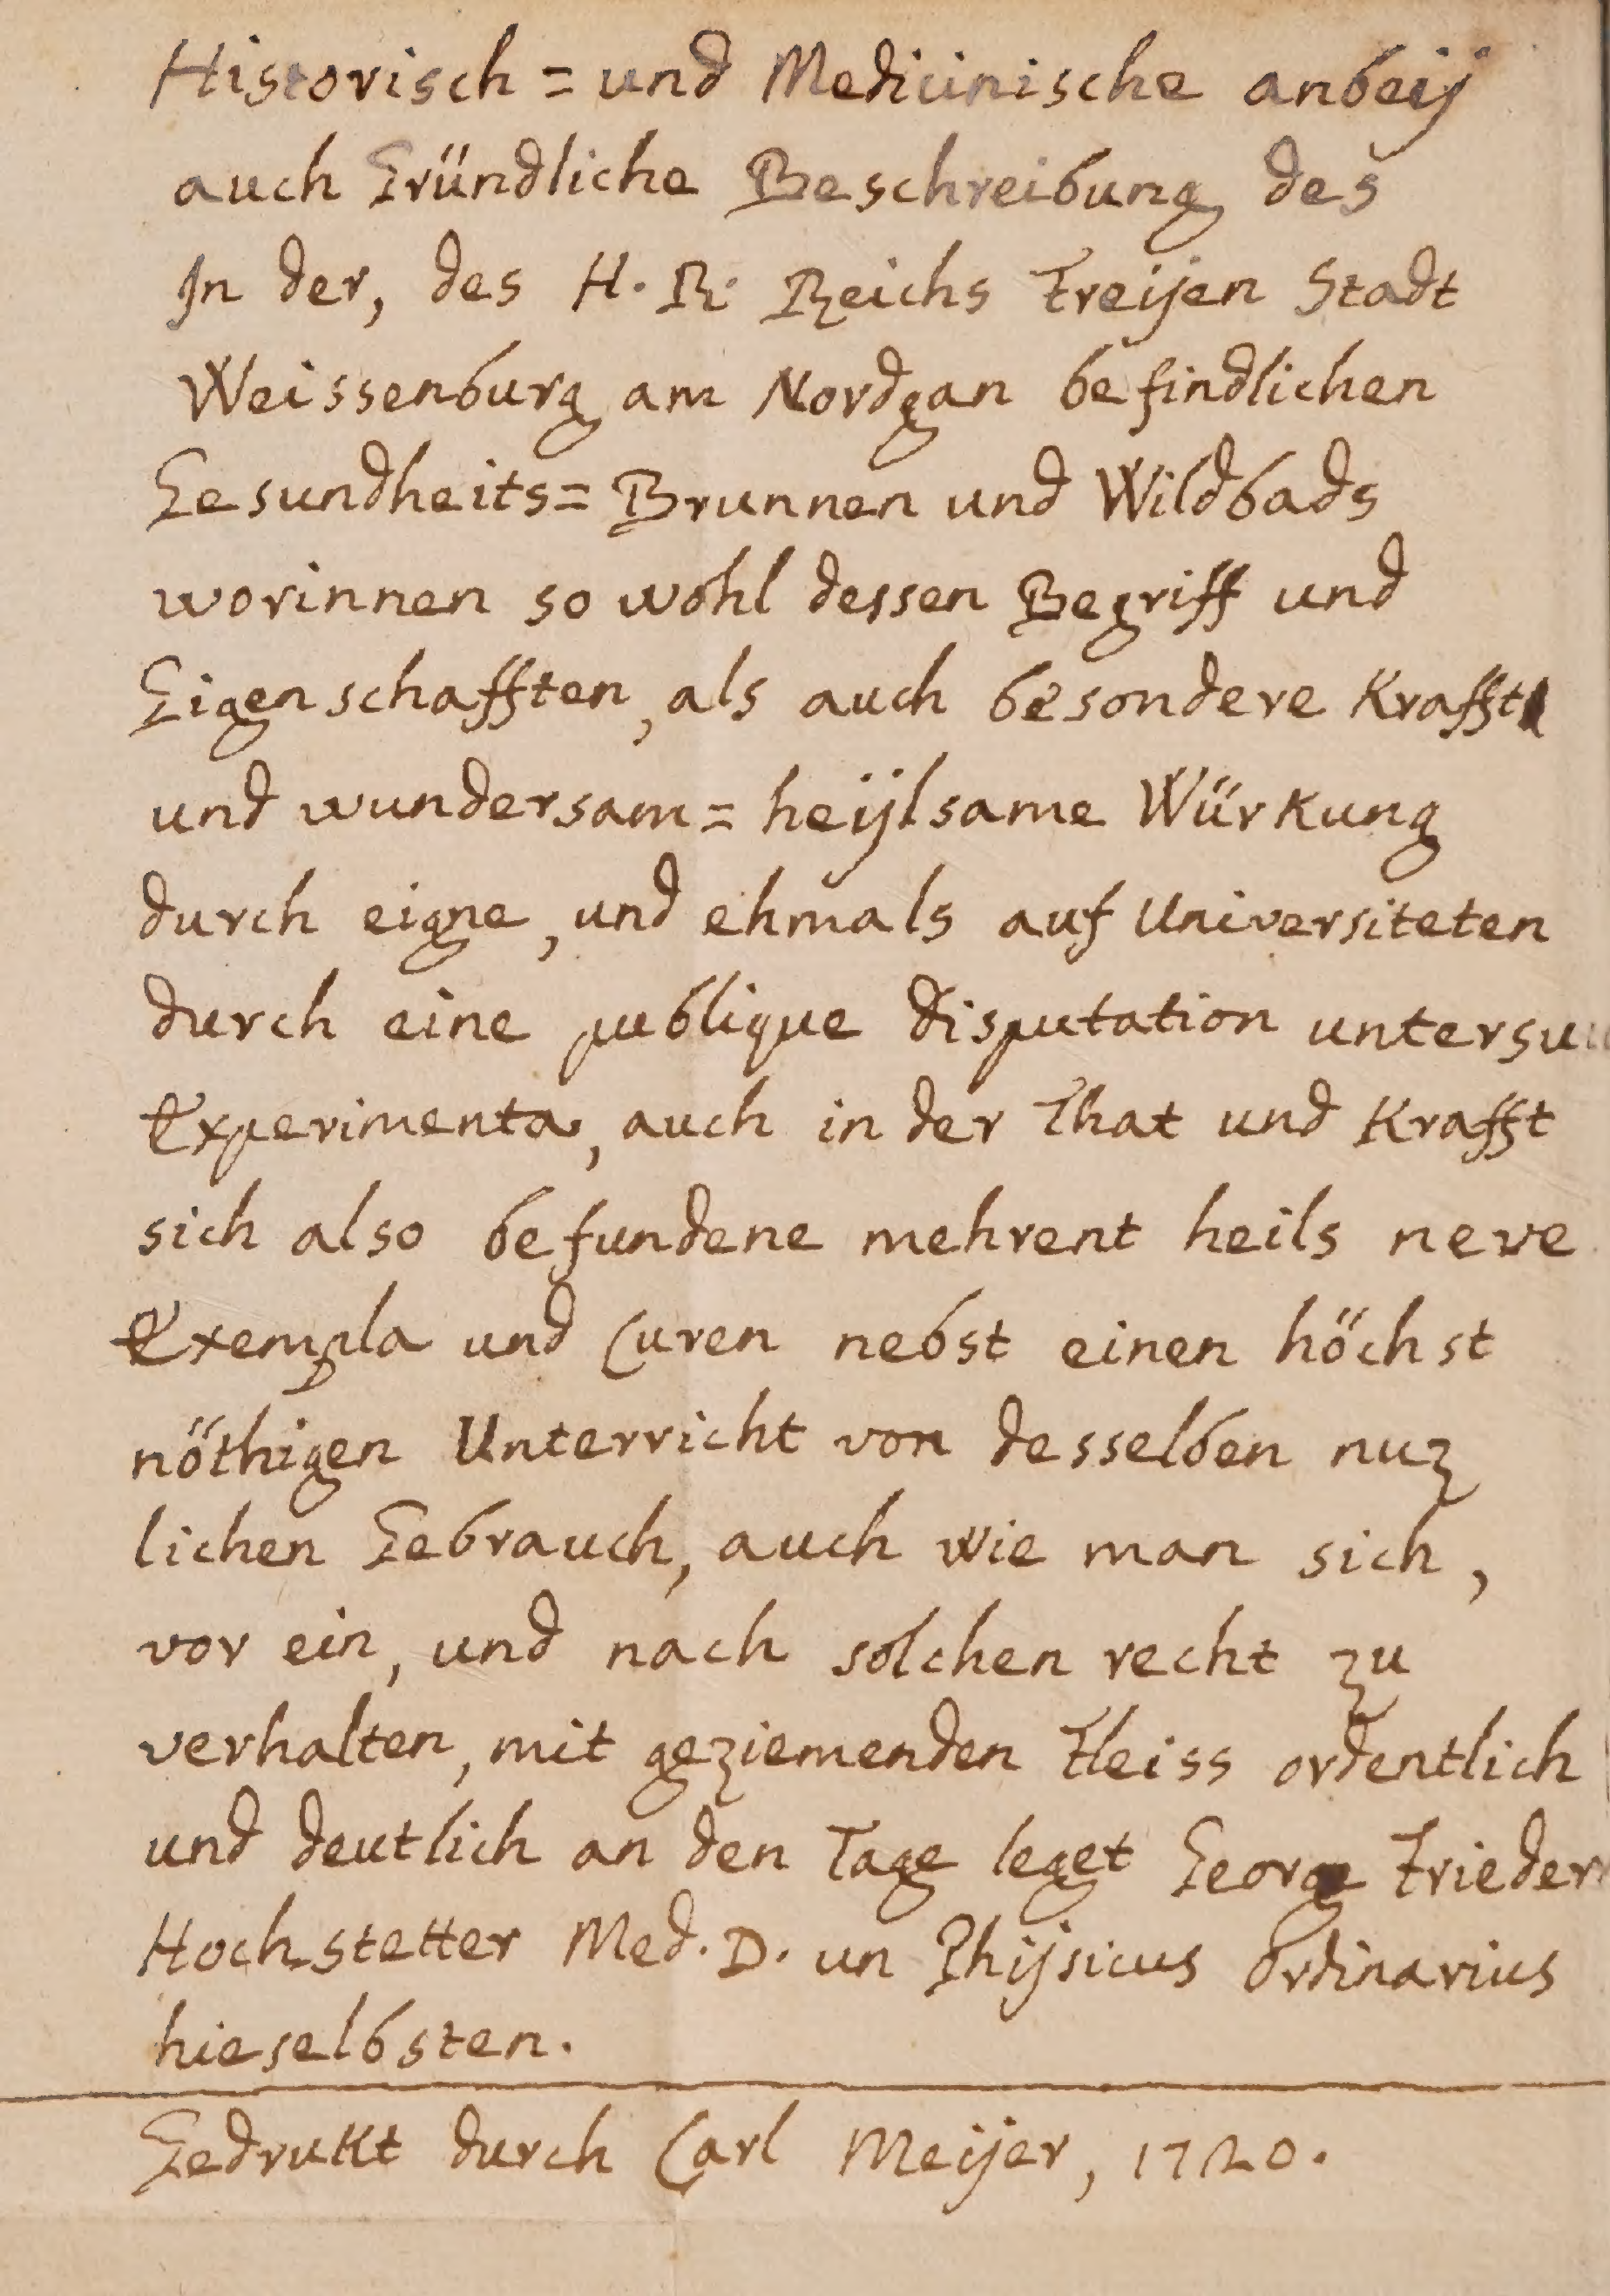 Historisch = und Medicinische anbeij
auch Gründliche Beschreibung des
In der, des H. R. Reichs Freijen Stadt
Weissenburg am Nordgan befindlichen
Gesundheits = Brunnen und Wildbads
worinnen so wohl dessen Begriff und
Eigenschafften, als auch besondere Krafft
und wundersam = heijlsame Würkung
durch eigne, und ehmals auf Universiteten
durch eine publique disputation
Experimenta, auch in der That und Krafft
sich also befundene mehrent heils neve
Exempla und Curen nebst einen höchst
nöthigen Unterricht von desselben nuz
lichen Gebrauch, auch wie man sich,
vor ein, und nach solchen recht zu
verhalten, mit geziemenden Fleiss ordentlich
und deutlich an den Tage leget Georg Frieder
Hochstetter Med. D. un Phijsicus ordinarius
hieselbsten.
Gedrukt durch Carl Meijer, 1720.